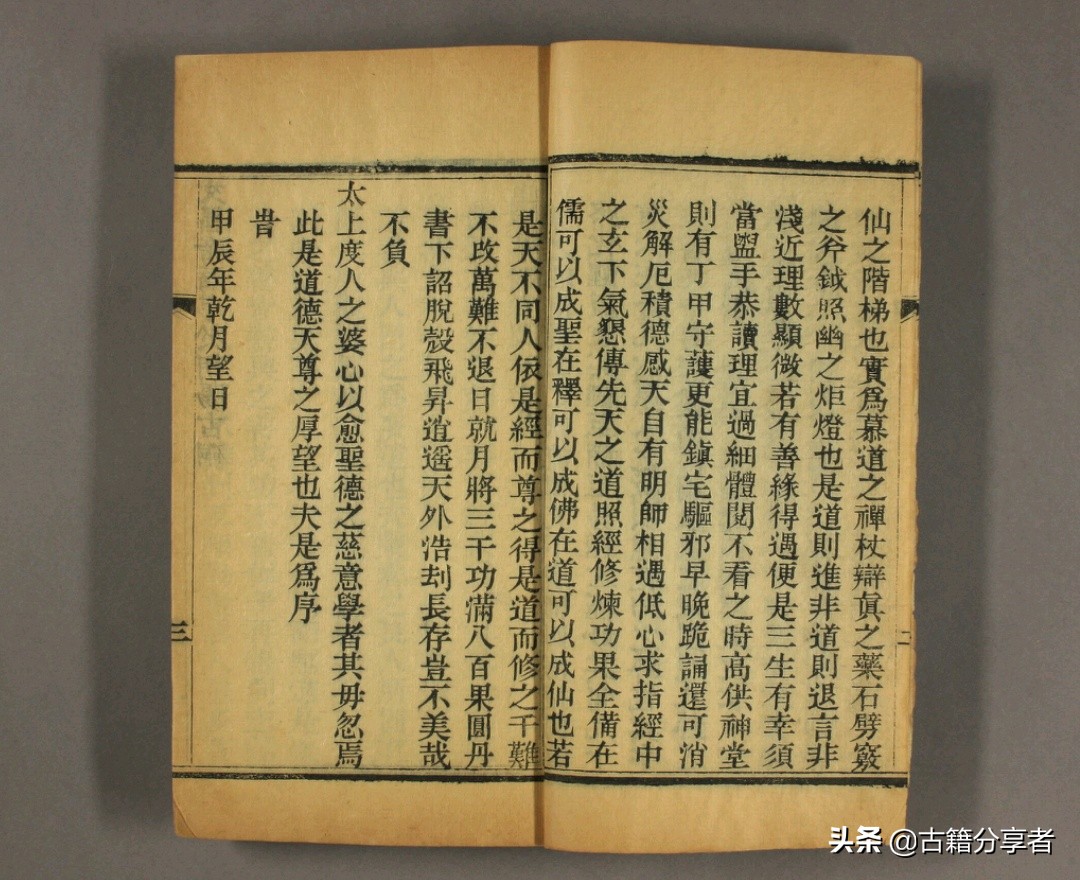 仙之階梯也實為慕道之禪杖辯眞之藥石劈竅
之斧鉞照幽之炬燈也是道則進非道則退言非
淺近理數顯微若有善緣得遇便是三生有幸須
當盥手恭讀理宜過細體閱不看之時高供神堂
則有丁甲守護更能鎮宅驅邪早晚跪誦還可消
災解厄積德感天自有明師相遇低心求指經中
之玄下氣懇傳先天之道照經修煉功果全備在
儒可以成聖在釋可以成佛在道可以成仙也若
二
是天不同人依是經而尊之得是道而修之千難
不改萬難不退日就月將三千功滿八百果圓丹
書下詔脫殼飛昇逍遙天外浩刼長存豈不美哉
不負
太上度人之婆心以愈聖德之慈意學者其毋忽焉
此是道德天尊之厚望也夫是為序
旹
甲辰年乾月望日
三
头条 @古籍分享者